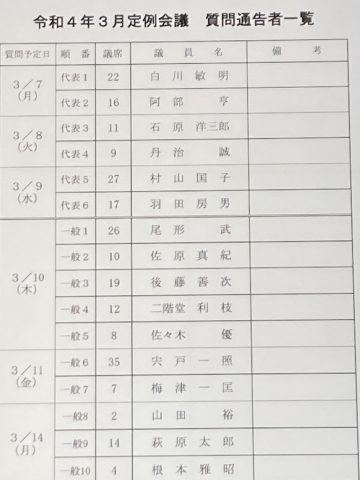 令和４年３月定例会議　質問通告者一覧
質問予定日　順　番　議席　議　員　名　備　考
３／７（月）　代表１　22　白　川　敏　明
代表２　16　阿　部　　　亨
３／８（火）　代表３　11　石　原　洋三郎
代表４　9　丹　治　　　誠
３／９（水）　代表５　27　村　山　国　子
代表６　17　羽　田　房　男
３／10（木）　一般１　26　尾　形　　　武
一般２　10　佐　原　真　紀
一般３　19　後　藤　善　次
一般４　12　二階堂　利　枝
一般５　8　佐々木　　　優
３／11（金）　一般６　35　宍　戸　一　照
一般７　7　梅　津　一　匡
３／14（月）　一般８　2　山　田　　　裕
一般９　14　萩　原　太　郎
一般10　4　根　本　雅　昭